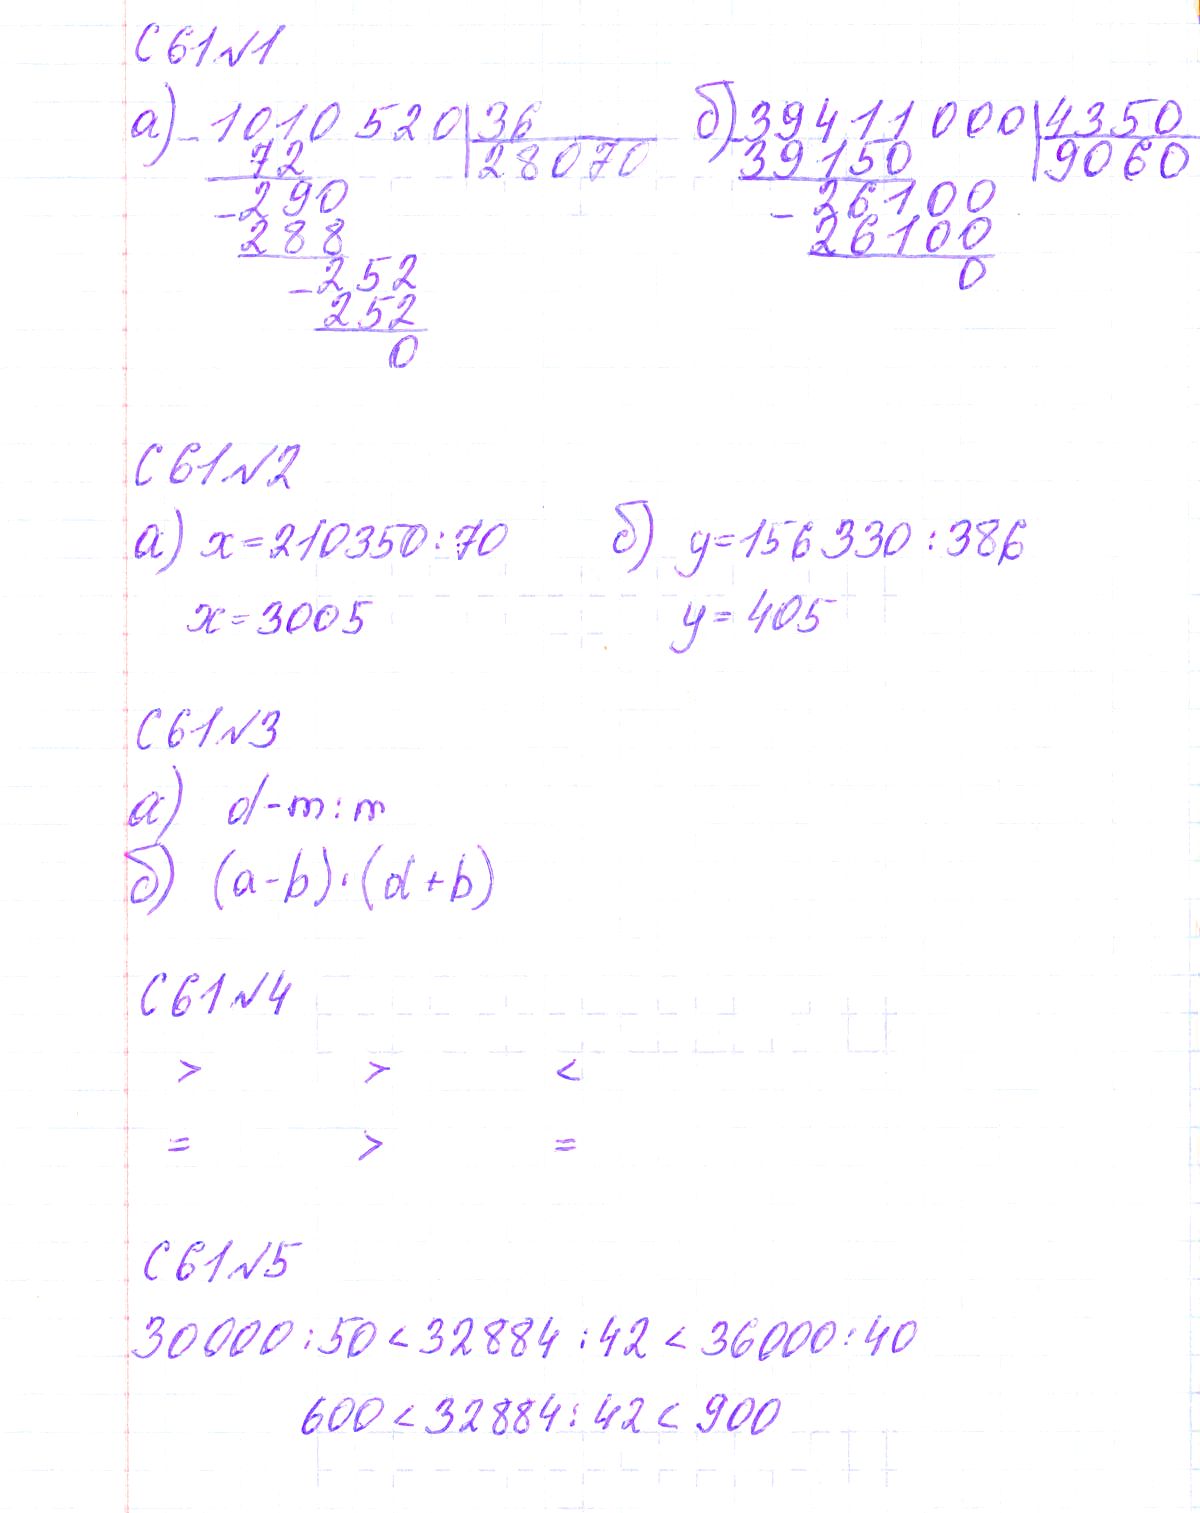 С 61 №1
а) - 1010 520 | 36
72 | 28070
- 290
288
- 252
252
0
б) - 39411 000 | 4350
39150 | 9060
- 26100
26100
0
С 61 №2
а) x = 210350 : 70
x = 3005
б) y = 156 330 : 386
y = 405
С 61 №3
а) d - m : m
б) (a - b) · (d + b)
С 61 №4
> > <
= > =
С 61 №5
30000 : 50 < 32884 : 42 < 36000 : 40
600 < 32884 : 42 < 900